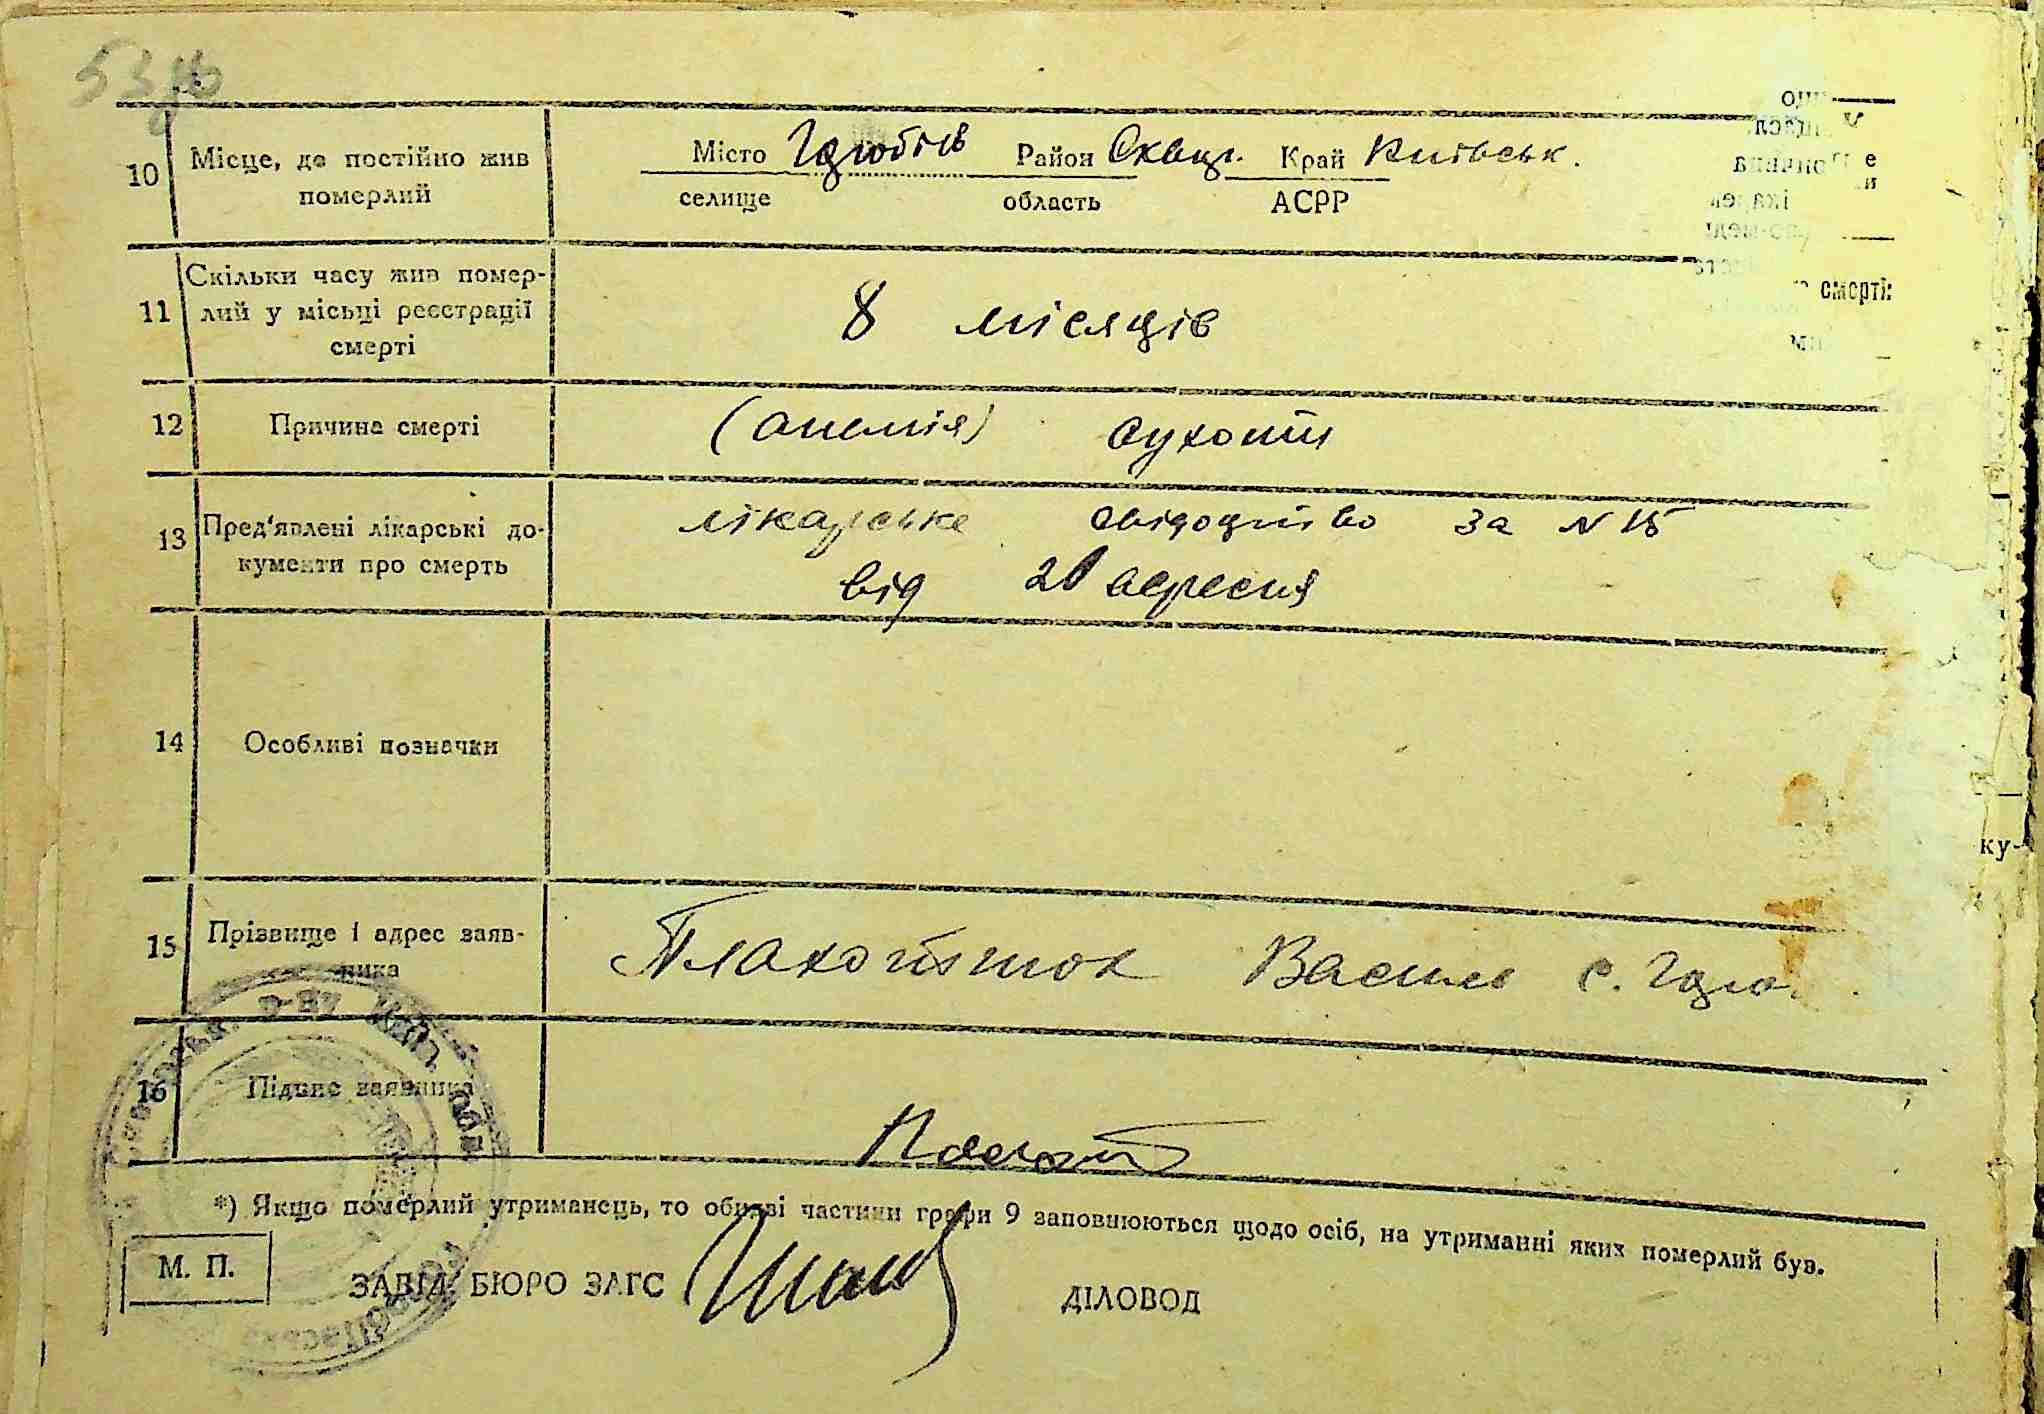 53
10 Місце, де постійно жив померлий
Місто Район Сквир. Край Київськ.
селище область АСРР
11 Скільки часу жив помер-
лий у місьці реєстрації
смерті
8 місяців
12 Причина смерті (анемія) сухоти
13 Пред'явлені лікарські до-
кументи про смерть
лікарське свідоцтво за N 15
від 20 вересня
14 Особливі позначки
15 Прізвище і адрес заяв-
ника
Плахотнюк Василь с.
16 Підпис заявника
*) Якщо померлий утриманець, то обидві частини графи 9 заповнюються щодо осіб, на утриманні яких померлий був.
М. П. ЗАВІД. БЮРО ЗАГС ДІЛОВОД
смерті:
ку-